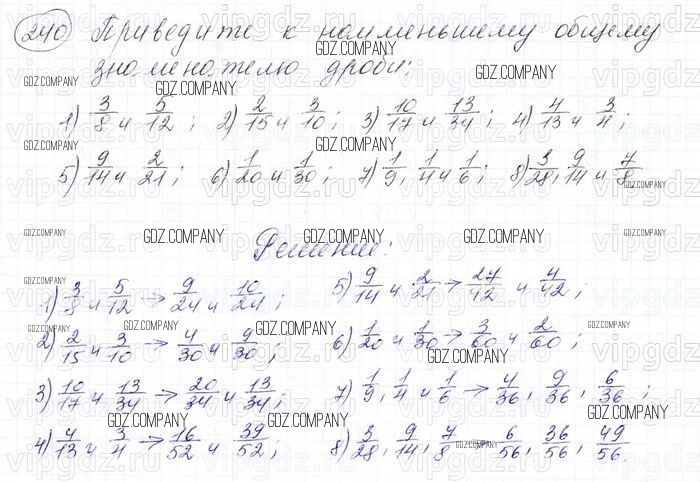 240 Приведите к наименьшему общему
знаменателю дроби:
1) 3/8 и 5/12; 2) 2/15 и 3/10; 3) 10/17 и 13/34; 4) 4/13 и 3/4;
5) 9/14 и 2/21; 6) 1/20 и 1/30; 7) 1/9, 1/4 и 1/6; 8) 3/28, 9/14 и 7/8
Решение:
1) 3/8 и 5/12 → 9/24 и 10/24;
2) 2/15 и 3/10 → 4/30 и 9/30;
3) 10/17 и 13/34 → 20/34 и 13/34;
4) 4/13 и 3/4 → 16/52 и 39/52;
5) 9/14 и 2/21 → 27/42 и 4/42;
6) 1/20 и 1/30 → 3/60 и 2/60;
7) 1/9, 1/4 и 1/6 → 4/36, 9/36, 6/36;
8) 3/28, 9/14, 7/8 → 6/56, 36/56, 49/56.
GDZ.COMPANY
vipgdz.ru